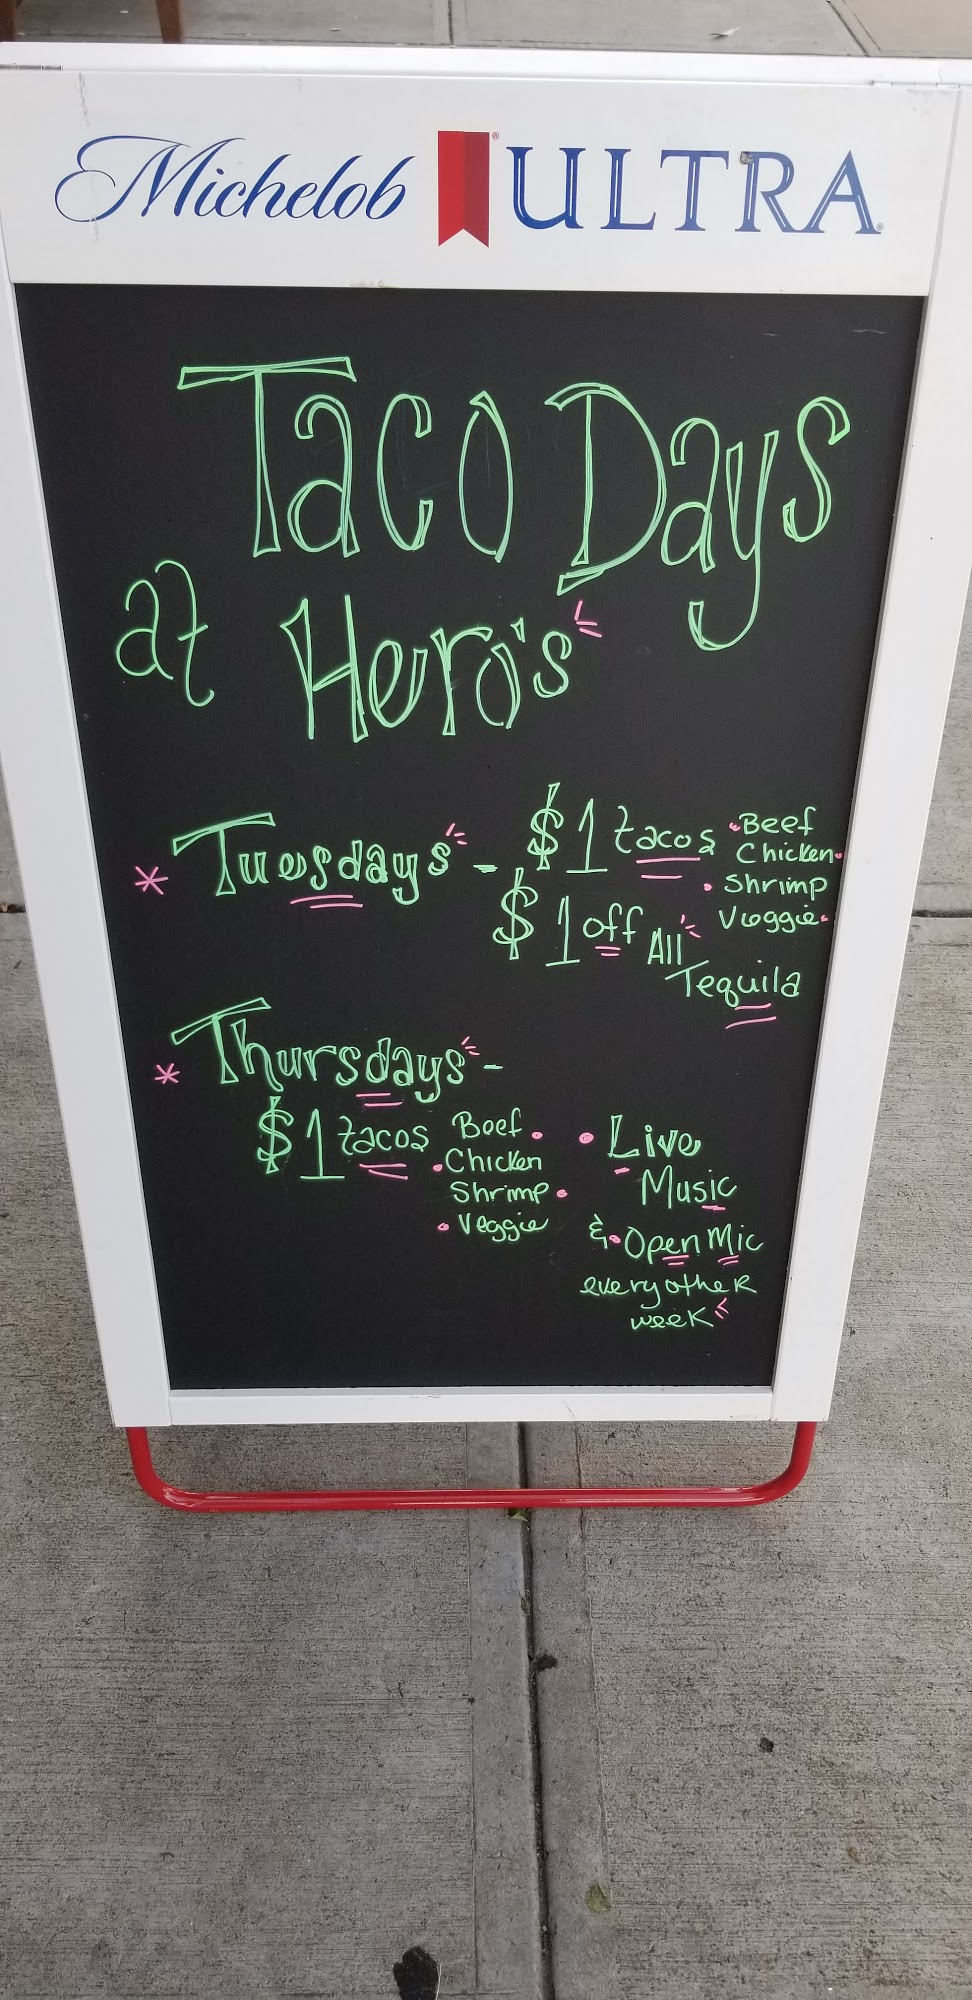 Michelob ULTRA
Taco Days
at Hero's
* Tuesdays - $1 tacos
Beef
Chicken
Shrimp
Veggie
$1 off All
Tequila
* Thursdays -
$1 tacos
Beef
Chicken
Shrimp
Veggie
Live
Music
& Open Mic
every other
week